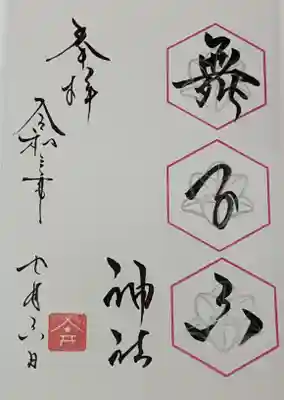 舞子六
神社
奉拝
令和三年
月六日